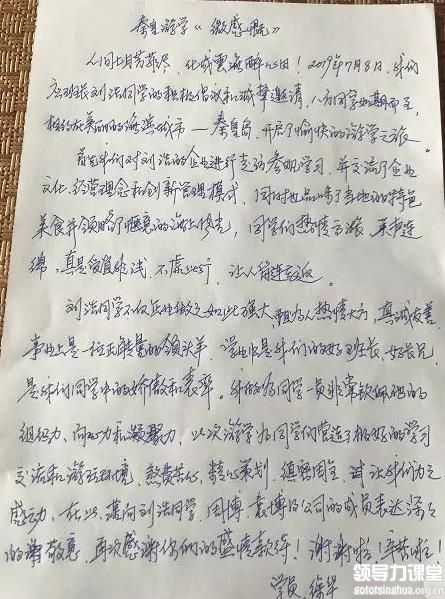 秦皇游学《微感慨》
人间七月芳菲尽，化城云海醉心田！2019年7月8日，我们
应班长刘浩同学的积极倡议和诚挚邀请，八方同学如期而至，
相约在美丽的海滨城市—秦皇岛，开启了愉快的游学之旅。
首先我们对刘浩的企业进行走访参观学习，并交流了企业
文化、经营理念和创新管理模式，同时也品味了当地的特色
美食并领略了惬意的海上阳光，同学们热情高涨，连
绵，真是收获非浅，不虚此行，让人流连忘返。
刘浩同学不仅企业做之如此强大，为人热情大方，真诚友善
事业上是一位正能量的领头羊，学业中是我们的好班长、好长兄，
是我们同学中的骄傲和表率。我做为同学一员非常钦佩他的
组织力、向心力和凝聚力，此次游学为同学们营造了极好的学习
交流和游玩环境，煞费苦心，精心策划，缜密周全，让我们为之
感动，在此，谨向刘浩同学，周博、袁博及公司的成员表达深深
的尊敬意，再次感谢你们的盛情款待！谢谢啦！辛苦啦！
学员 徐华
领导力课堂
gototsinghua.org.cn